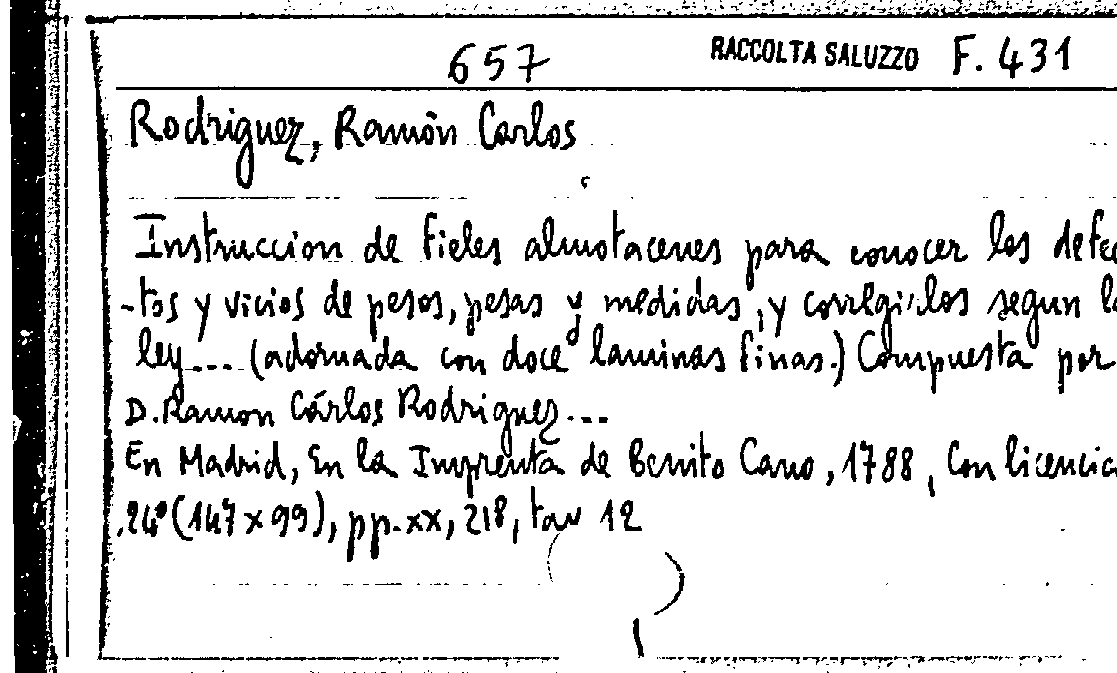 657 RACCOLTA SALUZZO F. 431
Rodriguez, Ramón Carlos
Instruccion de fieles almotacenes para conocer los defec
-tos y vicios de pesos, pesas y medidas, y corregirlos segun la
ley... (adornada con doce laminas finas.) Compuesta por
D. Ramon Cárlos Rodriguez...
En Madrid, En la Imprenta de Benito Cano, 1788, Con licencia
24° (147 x 99), pp. xx, 218, tav 12